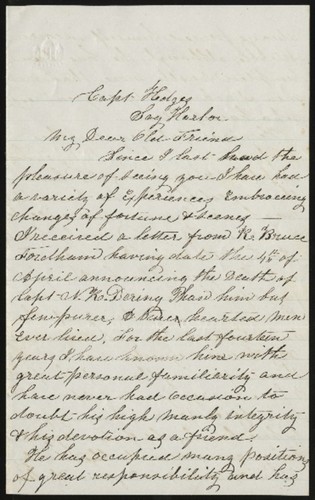 Capt Hedges
Sag Harbor
My Dear Old Friend
Since I last had the
pleasure of being you I have had
a varsity of Experiences Embracing
changes of fortune & scenes —
I received a letter from R. Bruce
having date the 4th of
April announcing the Death of
Capt N. K. Dering Than him but
few purer, & hearted men
Ever lived. For the last fourteen
years I have known him with
great personal familiarity and
have never had occasion to
doubt his high manly integrity
& his devotion as a friend.
He has occupied many positions
of great responsibility and has